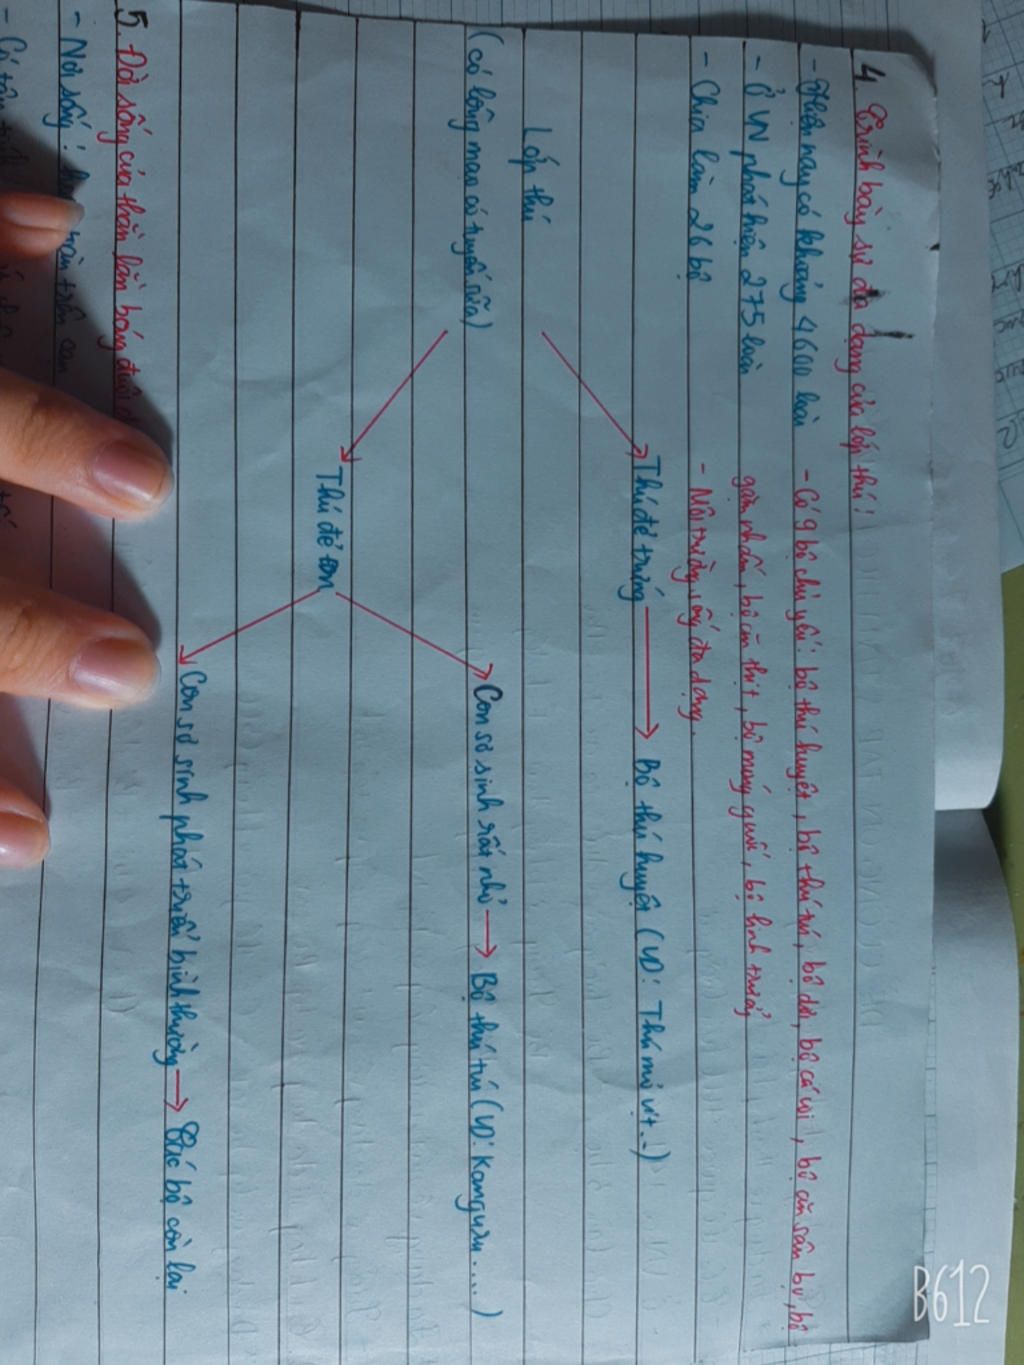 4. Trình bày sự đa dạng của lớp thú:
- Hiện nay có khoảng 4600 loài
- Ở VN phát hiện 275 loài
- Chia làm 26 bộ
- Có 9 bộ chủ yếu: bộ thú huyệt, bộ thú túi, bộ dơi, bộ cá voi, bộ ăn sâu bọ, bộ
gặm nhấm, bộ ăn thịt, bộ móng guốc, bộ linh trưởng
- Môi trường sống đa dạng.
Thú đẻ trứng → Bộ thú huyệt (VD: Thú mỏ vịt...)
Lớp thú
(có lông mao có tuyến sữa)
Con sơ sinh rất nhỏ → Bộ thú túi (VD: Kanguru....)
Thú đẻ con
Con sơ sinh phát triển bình thường → Các bộ còn lại
5. Đời sống của thằn lằn bóng đuôi
- Nơi sống:
- Có
B612